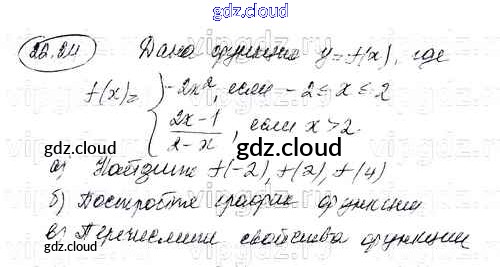 gdz.cloud
22.24 Дана функция y=f(x), где
f(x)= { -2x², если -2 ≤ x ≤ 2
2x-1 / 2-x, если x>2.
gdz.cloud
gdz.cloud
а) Найдите f(-2), f(2), f(4)
б) Постройте график функции
в) Перечислите свойства функции
gdz.cloud
gdz.cloud